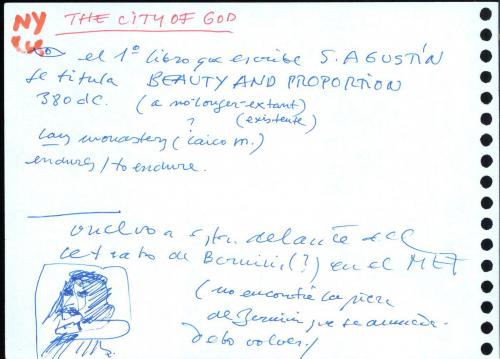 NY
THE CITY OF GOD
el 1º libro que escribe S. AGUSTÍN
se titula BEAUTY AND PROPORTION
380 d.C. (a no longer-extant)
?
(existente)
Lay monastery (laico m.)
endures / to endure.
vuelvo a estar delante del
retrato de Bernini (?) en el MET
(no encontré la pieza
de Bernini que se anuncia.
Debo volver)